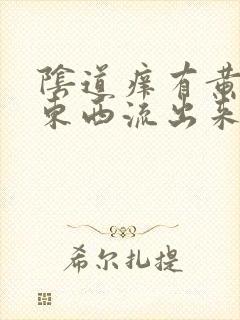 陰道痒有黄
東西流出来
希尔扎提